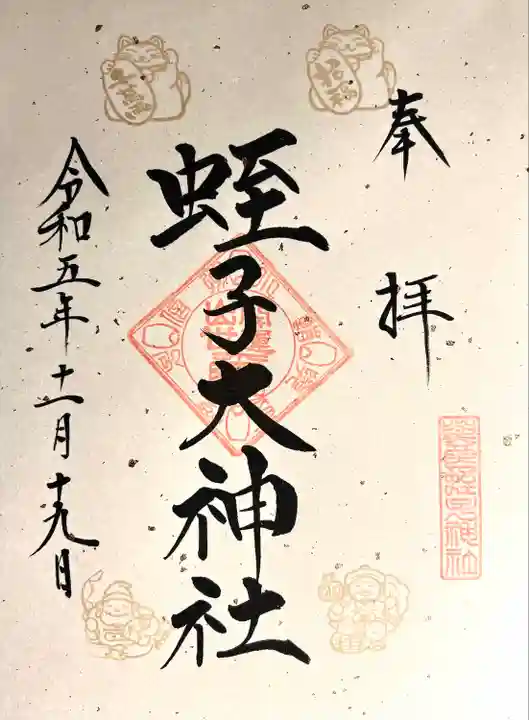 奉拝
蛭子大神社
令和五年十一月十九日
招福